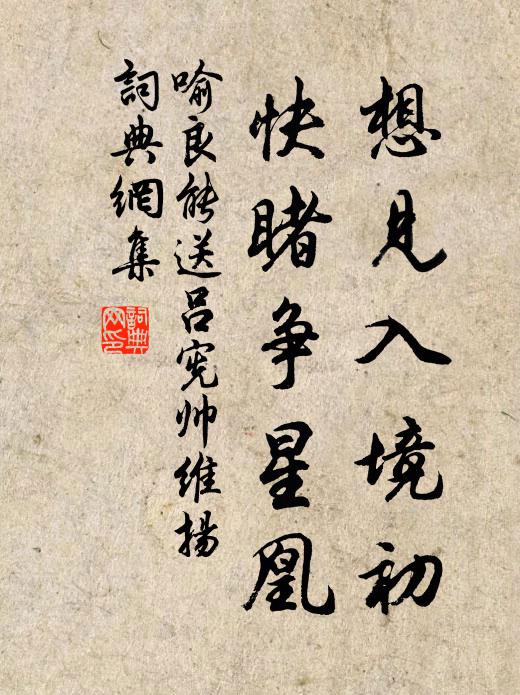 想見入境初
快睹争星凰
喻良能送吕宪帅维揚
詞典網集
詞典網印